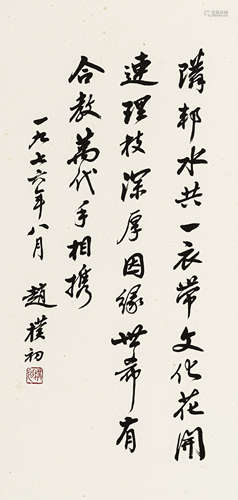 隣邦水共一衣帶文化花開
連理枝深厚因緣世希有
合教萬代手相携
一九七六年八月 趙樸初